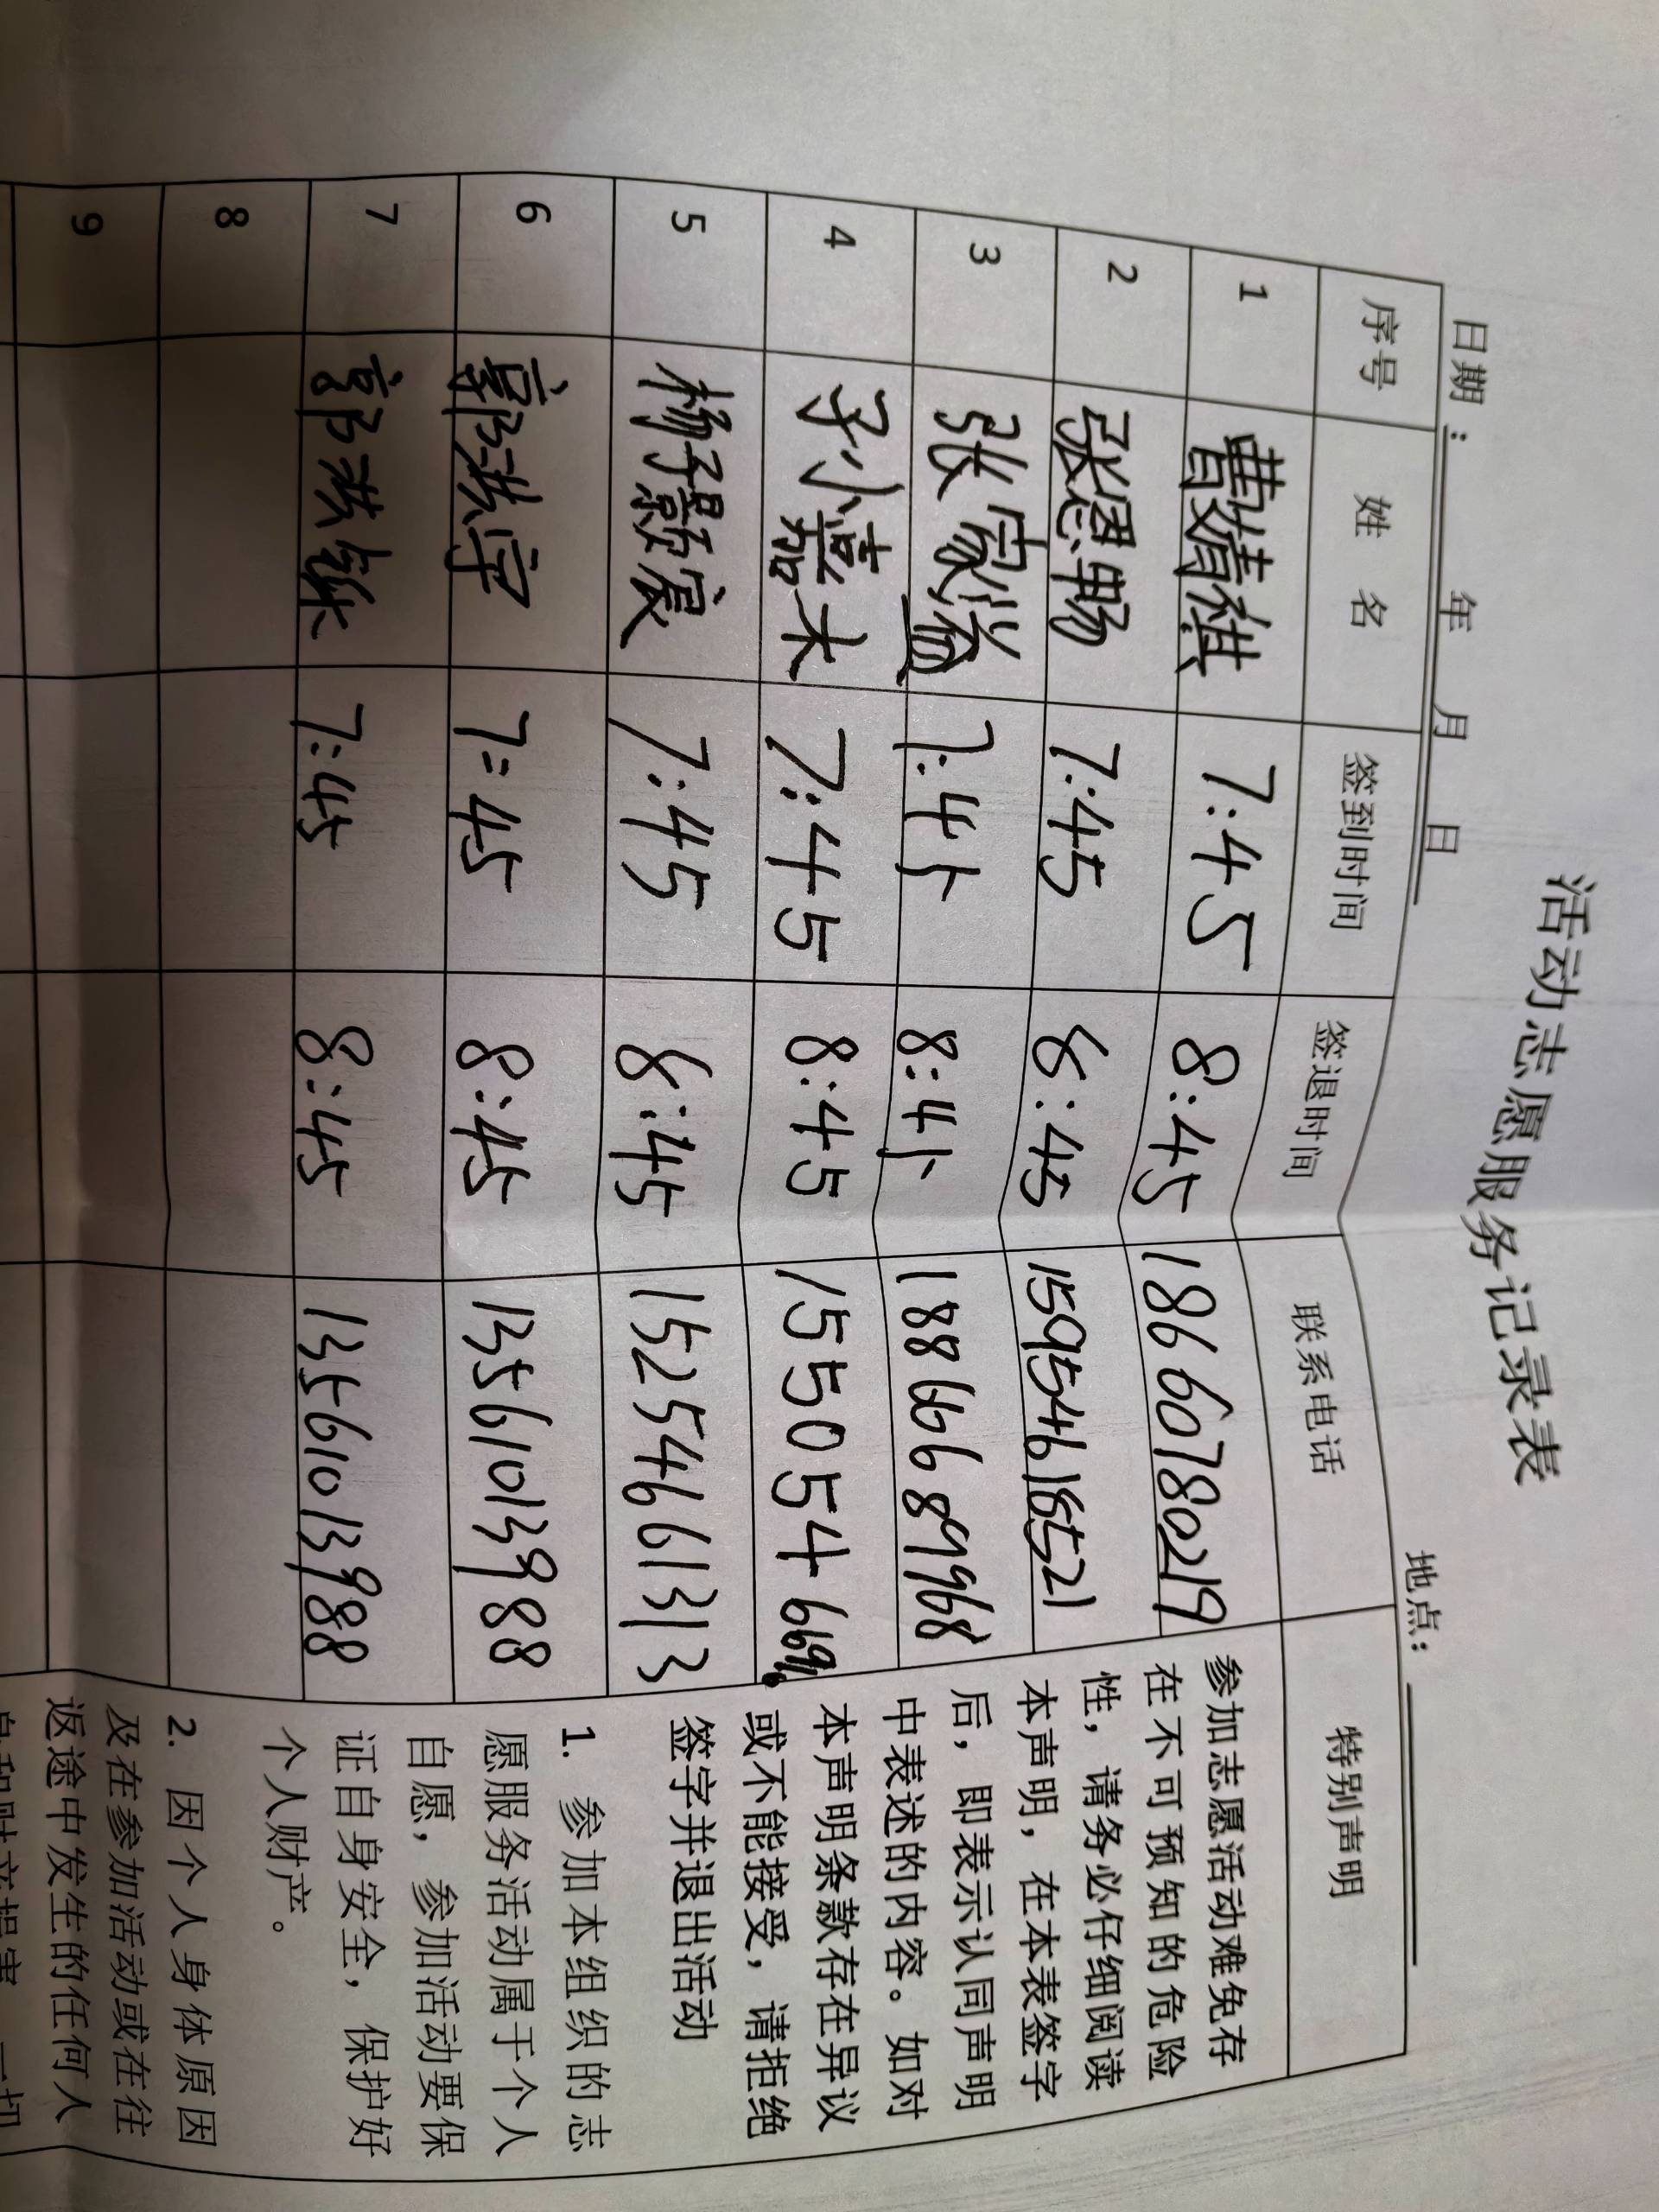 活动志愿服务记录表
日期：　年　月　日　地点：
序号 姓 名 签到时间 签退时间 联系电话 特别声明
1 曹婧祺 7:45 8:45 18660780219
2 张恩畅 7:45 8:45 15954616521
3 张家溢 7:45 8:45 18866689968
4 孙小嘉 7:45 8:45
5 杨子颢宸 7:45 8:45 15254661313
6 郭洪宇 7:45 8:45 13561013988
7 郭洪 7:45 8:45 13561013988
8
9
参加志愿活动难免存
在不可预知的危险
性，请务必仔细阅读
本声明，在本表签字
后，即表示认同声明
中表述的内容。如对
本声明条款存在异议
或不能接受，请拒绝
签字并退出活动
1. 参加本组织的志
愿服务活动属于个人
自愿，参加活动要保
证自身安全，保护好
个人财产。
2. 因个人身体原因
及在参加活动或在往
返途中发生的任何人